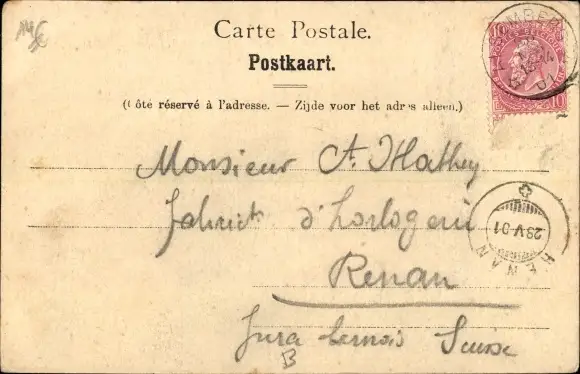 Carte Postale.
Postkaart.
(Côté réservé à l'adresse. — Zijde voor het adres alleen.)
10 10
01
Monsieur A. Mathey
Fabrict d'horlogerie
Renan
Jura bernois Suisse
B
RENAN
28 V-01